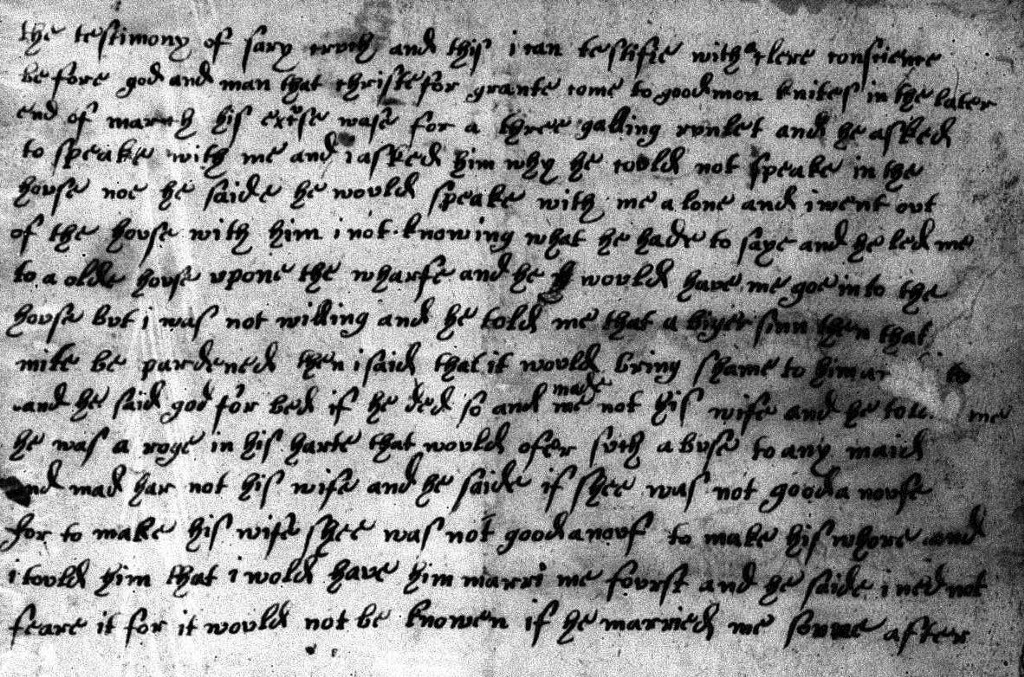 the testimony of sary crvch and this i can testifie with a clere conscience
be fore god and man that christefor grante come to good mon knites in the later
end of march his exese wase for a three galling runlet and he asked
to speake with me and i asked him why he covld not speake in the
house noe he saide he wovld speake with me a lone and i went out
of the hovse with him i not knowing what he hade to saye and he led me
to a olde hovse vpone the wharfe and he wovld have me goe into the
hovse bvt i was not willing and he told me that a biger sinn then that
mite be pardened then i said that it wovld bring shame to him to
and he said god for bed if he ded so and made me not his wife and he me
he was a roge in his harte that wovld ofer svch abvse to any maid
and mad har not his wife and he saide if shee was not good a novfe
for to make his wife shee was not good a novf to make his whore and
i tovld him that i wold have him marri me fovrst and he saide i ned not
feare it for it wovld not be knowen if he married me sonne after